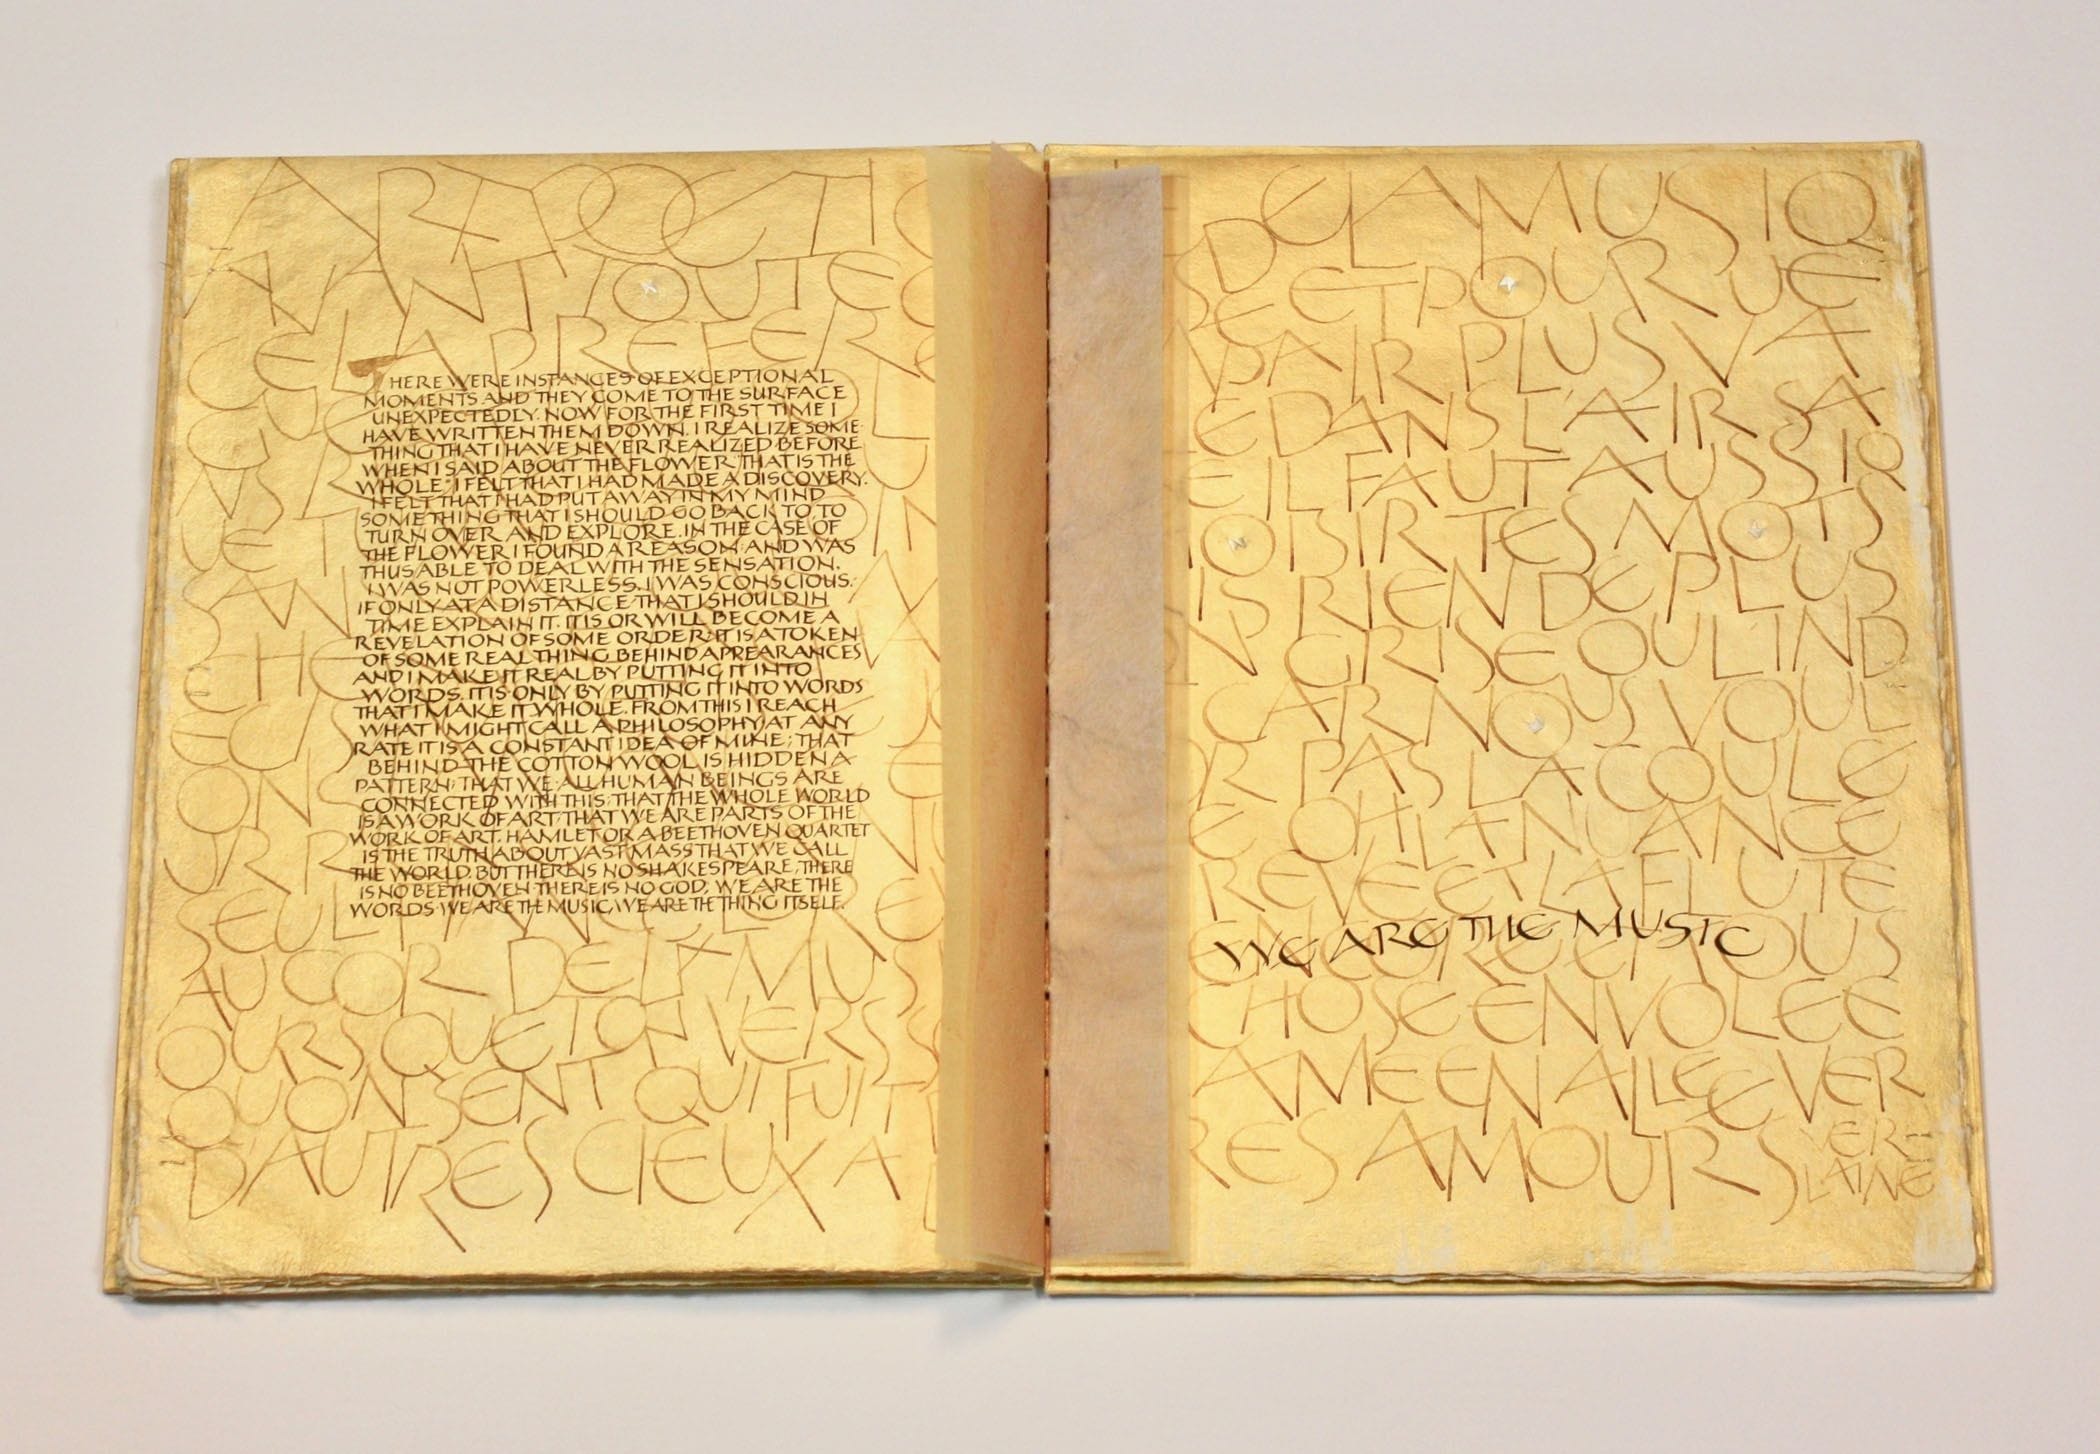 ART POETI
AVANT TOUTE
CELA PREFER
HERE WERE INSTANCES OF EXCEPTIONAL
MOMENTS AND THEY COME TO THE SURFACE
UNEXPECTEDLY. NOW FOR THE FIRST TIME I
HAVE WRITTEN THEM DOWN. I REALIZE SOME-
THING THAT I HAVE NEVER REALIZED BEFORE.
WHEN I SAID ABOUT THE FLOWER "THAT IS THE
WHOLE", I FELT THAT I HAD MADE A DISCOVERY.
I FELT THAT I HAD PUT AWAY IN MY MIND
SOMETHING THAT I SHOULD GO BACK TO, TO
TURN OVER AND EXPLORE. IN THE CASE OF
THE FLOWER I FOUND A REASON AND WAS
THUS ABLE TO DEAL WITH THE SENSATION.
I WAS NOT POWERLESS. I WAS CONSCIOUS.
IF ONLY AT A DISTANCE THAT I SHOULD IN
TIME EXPLAIN IT. IT IS OR WILL BECOME A
REVELATION OF SOME ORDER; IT IS A TOKEN
OF SOME REAL THING BEHIND APPEARANCES
AND I MAKE IT REAL BY PUTTING IT INTO
WORDS. IT IS ONLY BY PUTTING IT INTO WORDS
THAT I MAKE IT WHOLE. FROM THIS I REACH
WHAT I MIGHT CALL A PHILOSOPHY; AT ANY
RATE IT IS A CONSTANT IDEA OF MINE; THAT
BEHIND THE COTTON WOOL IS HIDDEN A
PATTERN; THAT WE ALL HUMAN BEINGS ARE
CONNECTED WITH THIS; THAT THE WHOLE WORLD
IS A WORK OF ART; THAT WE ARE PARTS OF THE
WORK OF ART. HAMLET OR A BEETHOVEN QUARTET
IS THE TRUTH ABOUT VAST MASS THAT WE CALL
THE WORLD. BUT THERE IS NO SHAKESPEARE, THERE
IS NO BEETHOVEN THERE IS NO GOD; WE ARE THE
WORDS WE ARE THE MUSIC, WE ARE THE THING ITSELF.
AU COR DE LA MUS
OURS QUE TON VERS S
QU ON SENT QUI FUIT
D'AUTRES CIEUX A
DE LA MUSIQ
ET POUR
PAIR PLUS VA
DANS L'AIR SA
IL FAUT AUSSI Q
OISIR TES MOTS
RIEN DE PLUS
GRISE OU L'IND
CAR NOUS VOUL
PAS LA COULE
OH LA NUANCE
REVE ET LA FLUTE
WE ARE THE MUSIC
CHOSE ENVOLEE
AME EN ALLEE VER
RES AMOURS VER-
LAINE